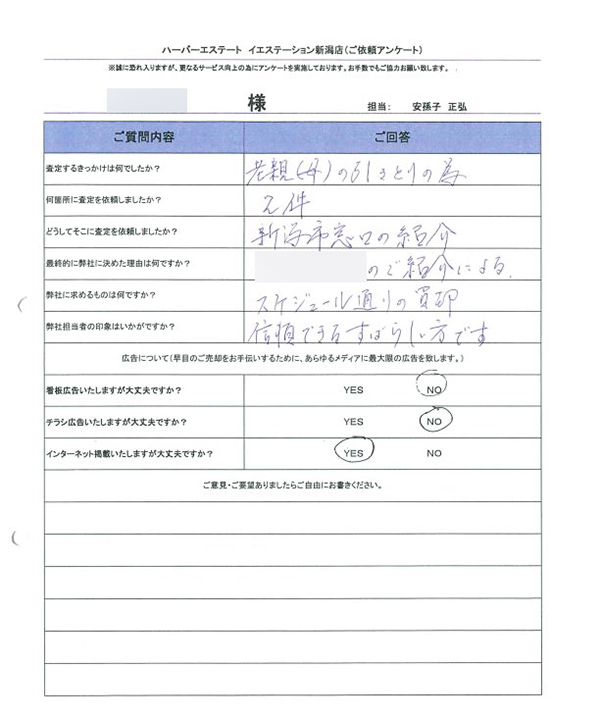 ハーバーエステート イエステーション新潟店(ご依頼アンケート)
※誠に恐れ入りますが、更なるサービス向上の為にアンケートを実施しております。お手数でもご協力お願い致します。
様 担当: 安孫子 正弘
ご質問内容 ご回答
査定するきっかけは何でしたか? 老親(母)の引きとりの為
何箇所に査定を依頼しましたか? 2件
どうしてそこに査定を依頼しましたか? 新潟市窓口の紹介
最終的に弊社に決めた理由は何ですか? のご紹介による。
弊社に求めるものは何ですか? スケジュール通りの買却
弊社担当者の印象はいかがですか? 信頼できるすばらしい方です
広告について(早目のご売却をお手伝いするために、あらゆるメディアに最大限の広告を致します。)
看板広告いたしますが大丈夫ですか? YES NO
チラシ広告いたしますが大丈夫ですか? YES NO
インターネット掲載いたしますが大丈夫ですか? YES NO
ご意見・ご要望ありましたらご自由にお書きください。